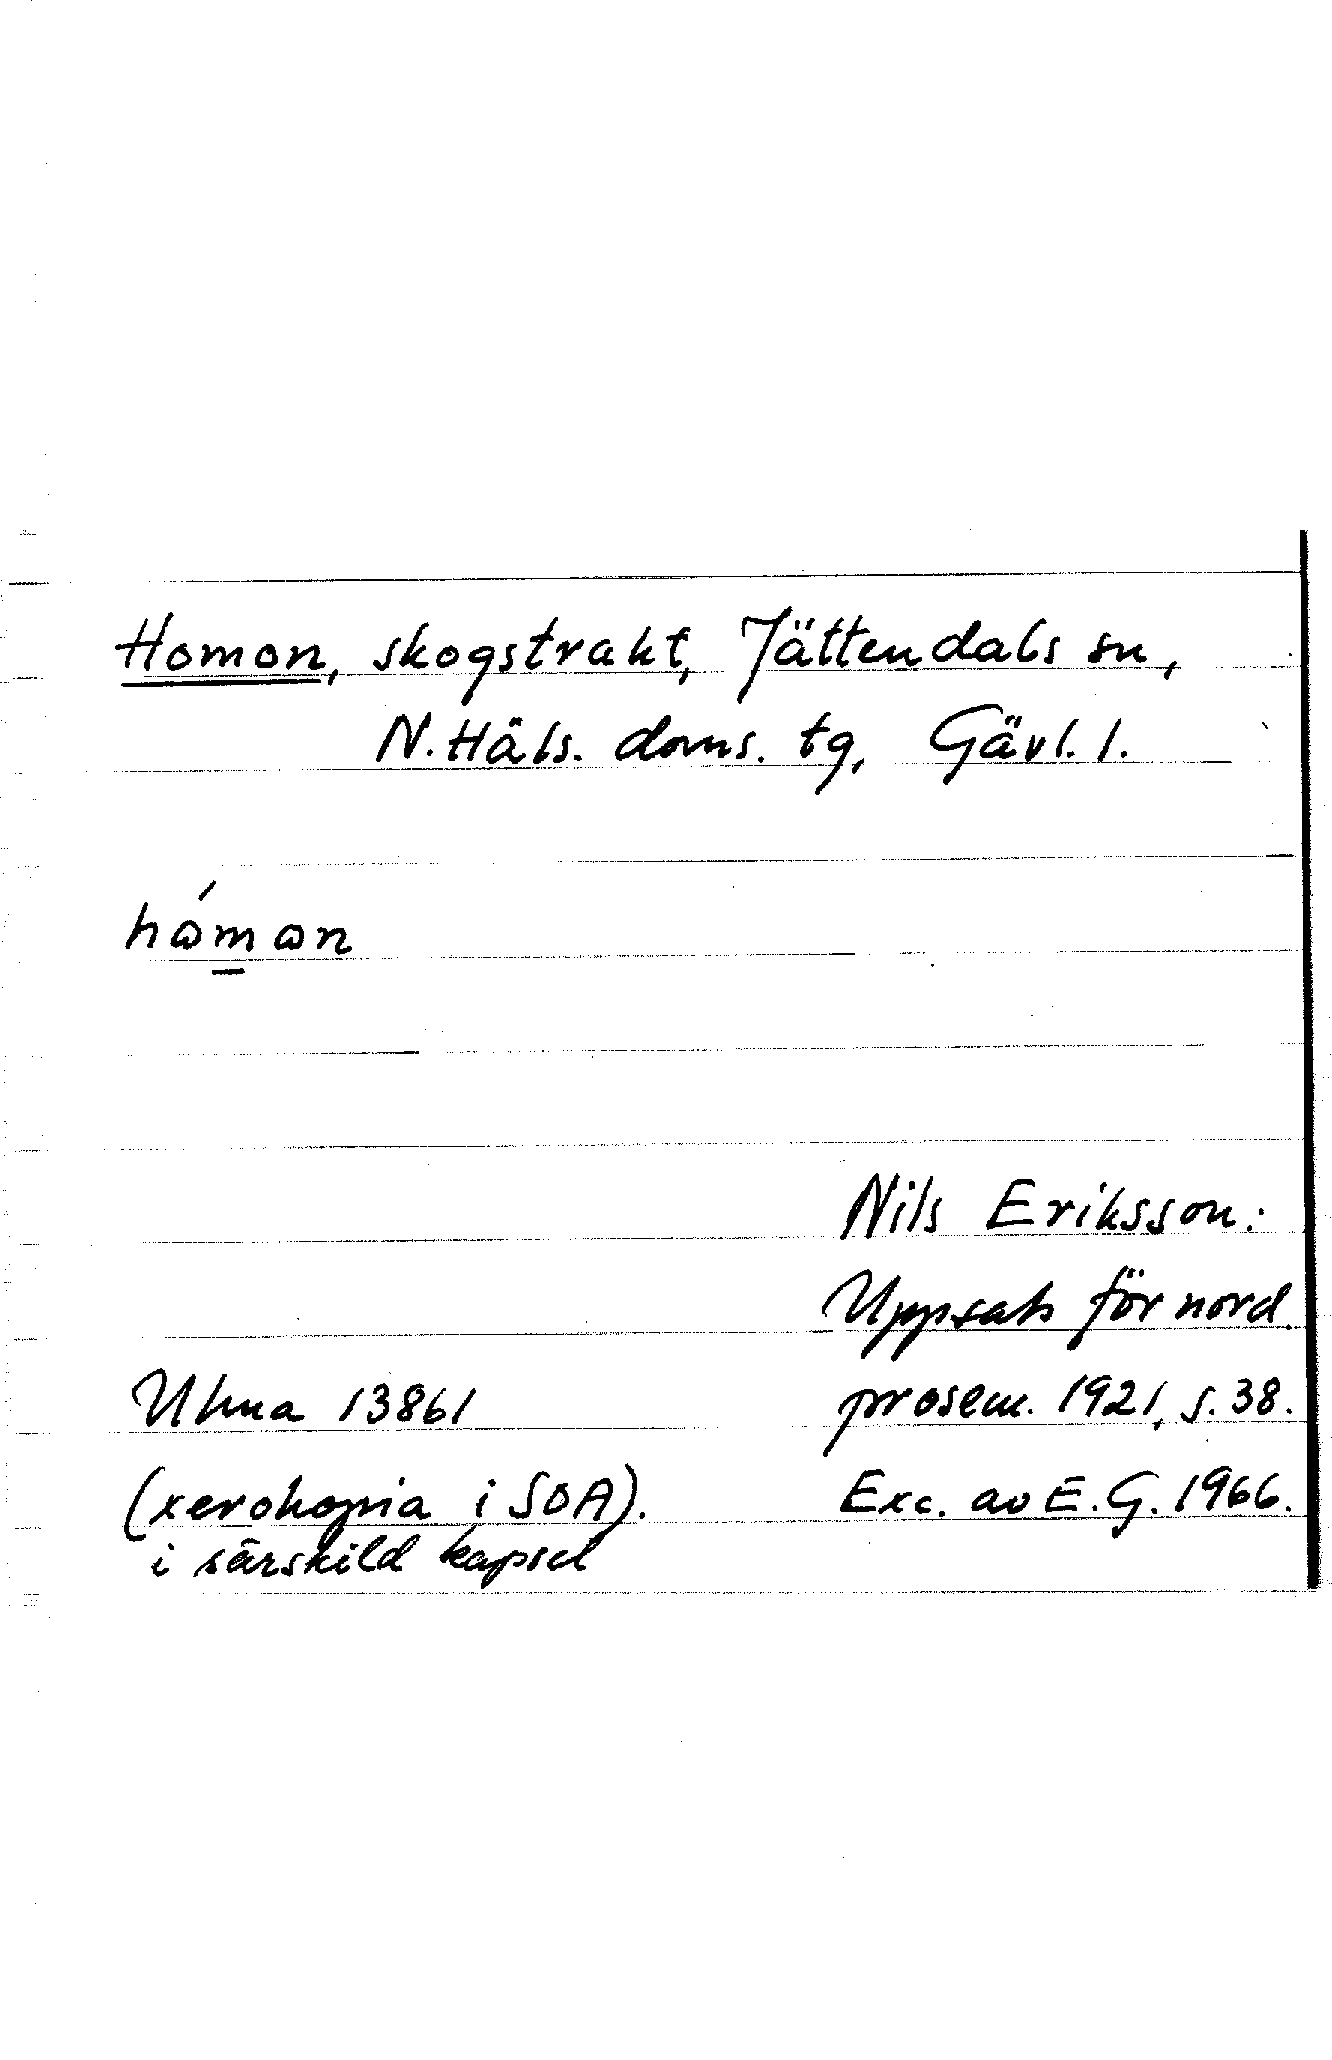 Homon, skogstrakt, Jättendals sn,
N. Häls. doms. tg, Gävl. l.
hɷ́mɷn
Nils Eriksson:
Uppsats för nord.
Ulma 13861
prosem. 1921, s. 38.
(xerokopia i SOA).
Exc. av E. G. 1966.
i särskild kapsel